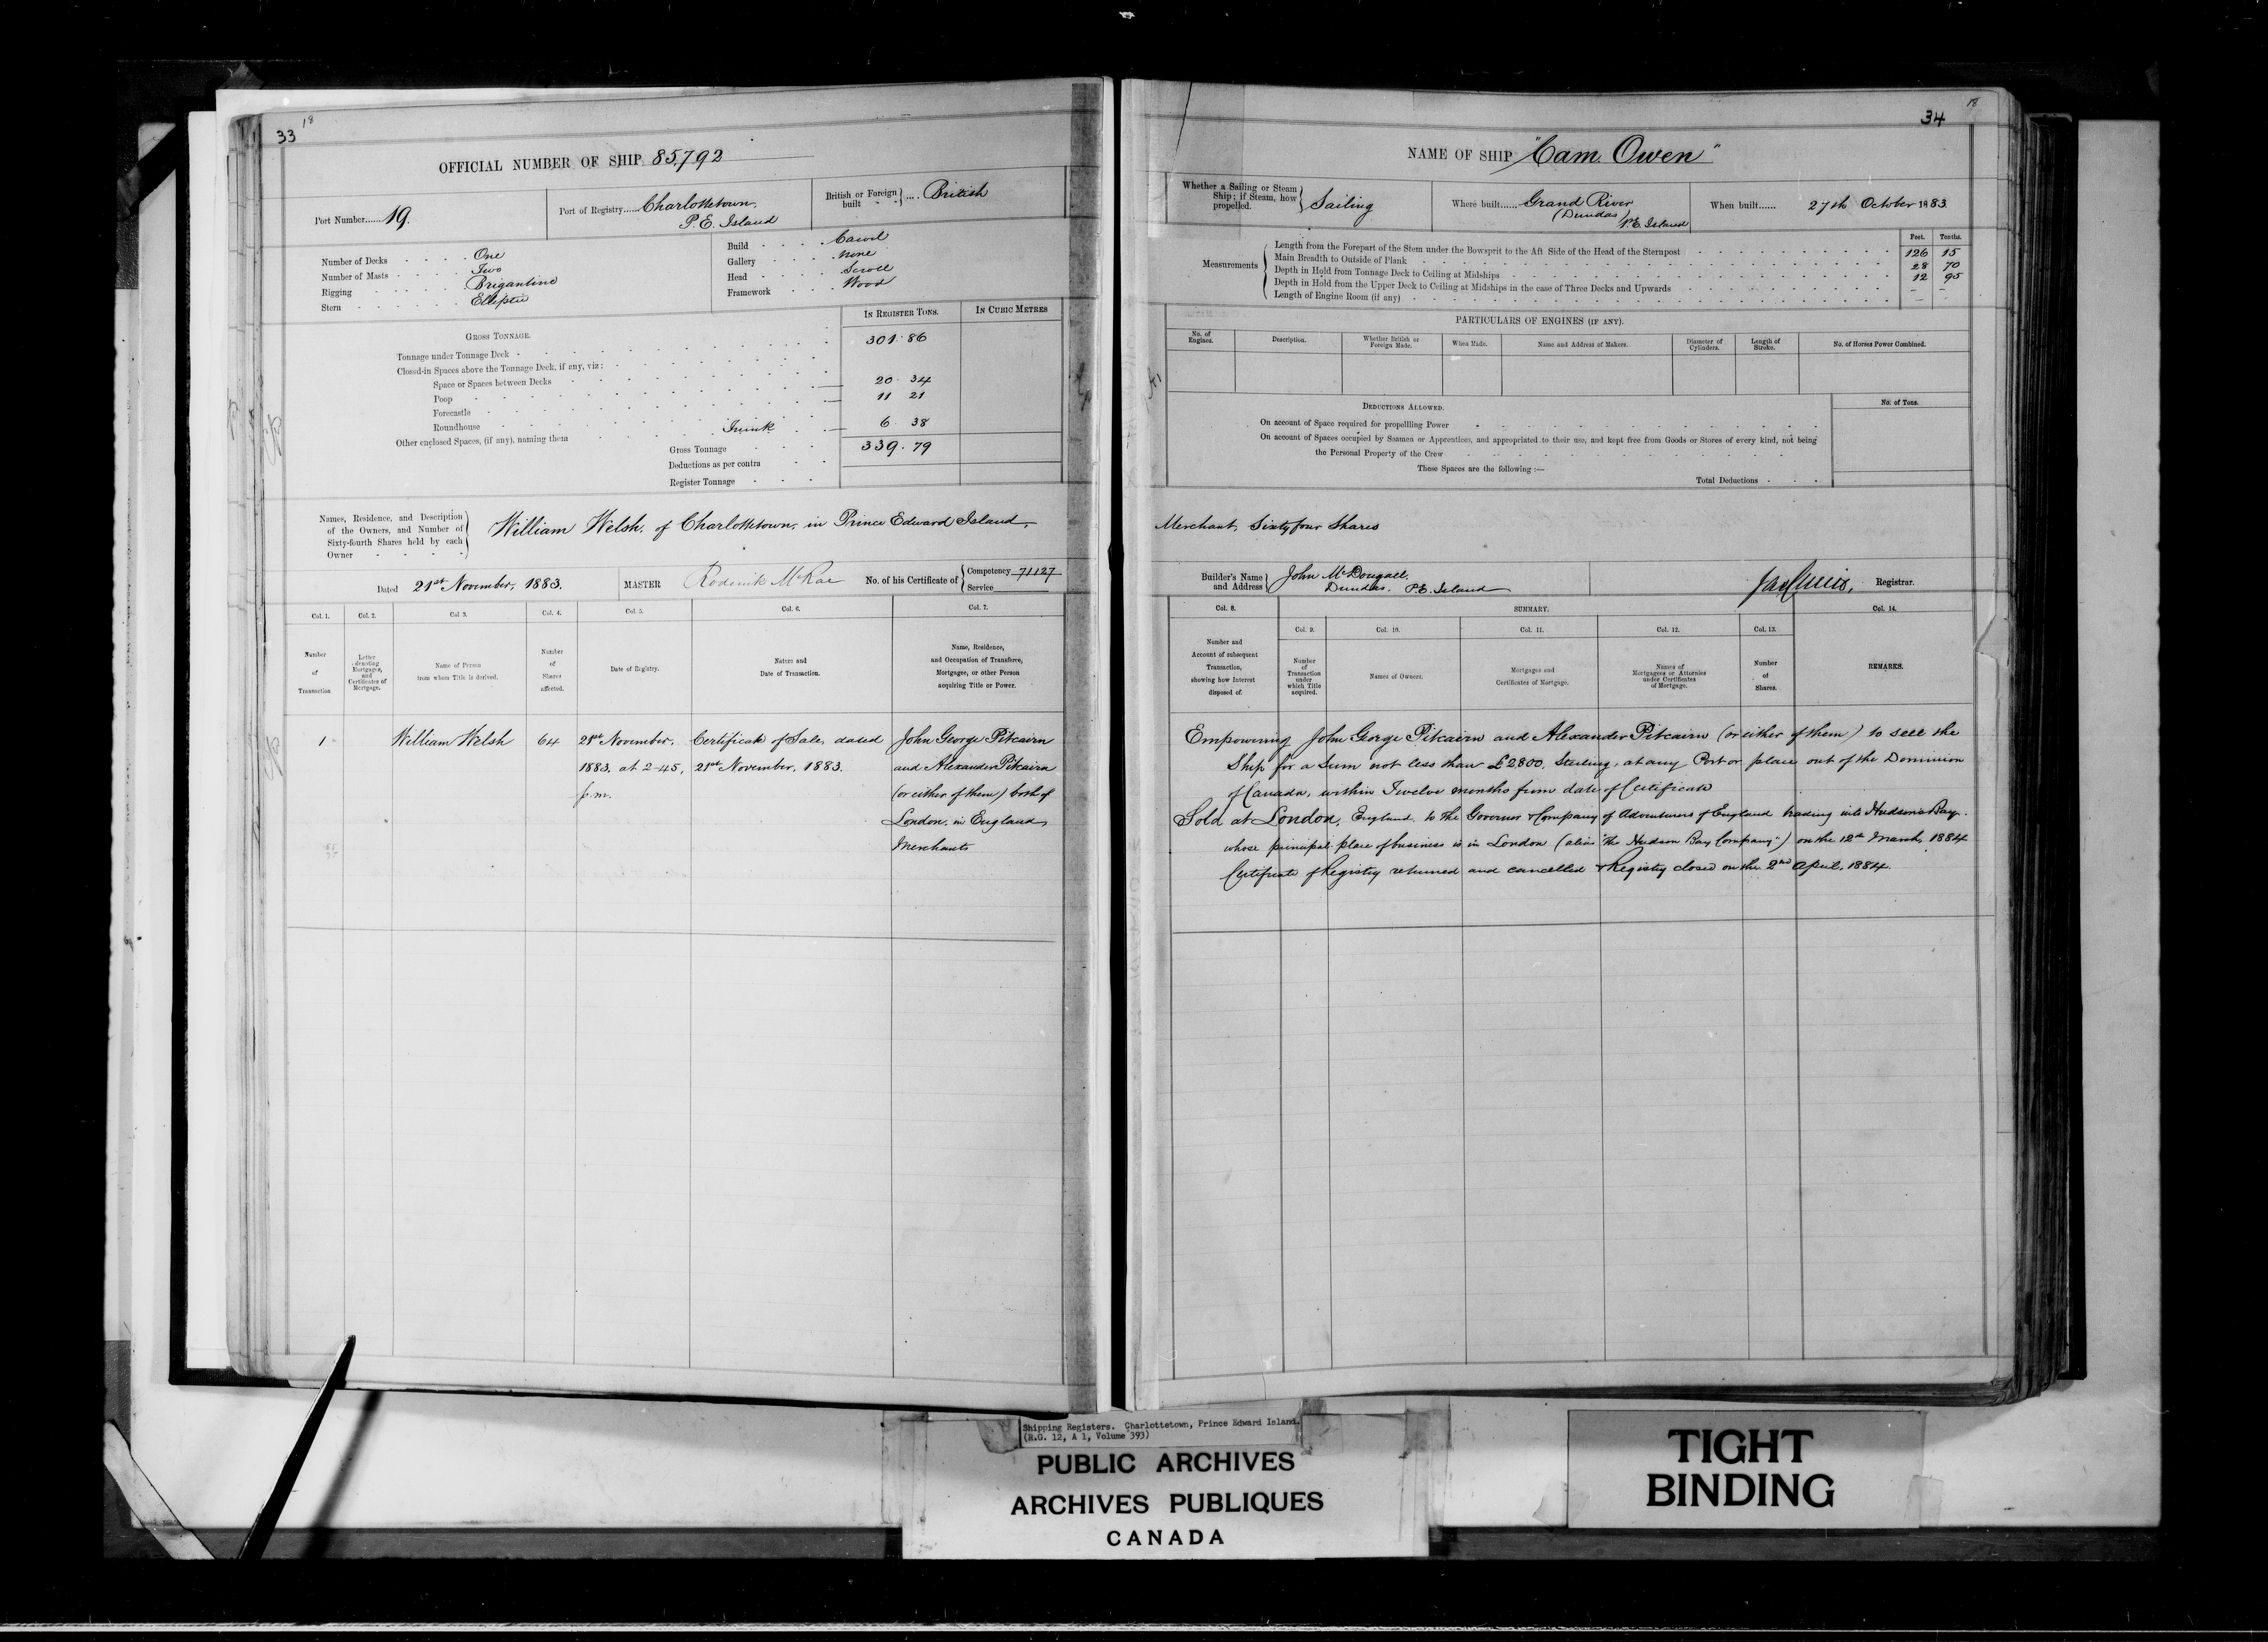 33
18
OFFICIAL NUMBER OF SHIP 85,792
Port Number...... 19.
Port of Registry...... Charlottetown,
P.E. Island
British or Foreign built .... British
Number of Decks One
Number of Masts Two
Rigging Brigantine
Stern Elliptic
Build Carvel
Gallery None
Head Scroll
Framework Wood
IN REGISTER TONS.
IN CUBIC METRES
GROSS TONNAGE.
Tonnage under Tonnage Deck 301.86
Closed-in Spaces above the Tonnage Deck, if any, viz:
Space or Spaces between Decks
Poop 20 34
Forecastle 11 21
Roundhouse
Other enclosed Spaces, (if any), naming them Trunk 6 38
Gross Tonnage 339.79
Deductions as per contra
Register Tonnage
Names, Residence, and Description
of the Owners, and Number of
Sixty-fourth Shares held by each
Owner
William Welsh, of Charlottetown, in Prince Edward Island,
Dated 21st November, 1883.
MASTER Roderick McRae
No. of his Certificate of
Competency 71127
Service
Col. 1. Col. 2. Col. 3. Col. 4. Col. 5. Col. 6. Col. 7.
Number of Transaction
Letter denoting Mortgages, and Certificates of Mortgage.
Name of Person from whom Title is derived.
Number of Shares affected.
Date of Registry.
Nature and Date of Transaction.
Name, Residence, and Occupation of Transferee, Mortgagee, or other Person acquiring Title or Power.
1 William Welsh 64 21st November, Certificate of Sale, dated John George Pitcairn
1883, at 2-45, 21st November, 1883. and Alexander Pitcairn
p.m. (or either of them) both of
London, in England,
Merchants
34
18
NAME OF SHIP "Cam Owen"
Whether a Sailing or Steam Ship; if Steam, how propelled. Sailing
Where built...... Grand River
(Dundas)
P.E. Island
When built...... 27th October 1883
Feet. Tenths.
Measurements
Length from the Forepart of the Stem under the Bowsprit to the Aft Side of the Head of the Sternpost 126 15
Main Breadth to Outside of Plank 28 70
Depth in Hold from Tonnage Deck to Ceiling at Midships 12 95
Depth in Hold from the Upper Deck to Ceiling at Midships in the case of Three Decks and Upwards - -
Length of Engine Room (if any) - -
PARTICULARS OF ENGINES (IF ANY).
No. of Engines.
Description.
Whether British or Foreign Made.
When Made.
Name and Address of Makers.
Diameter of Cylinders.
Length of Stroke.
No. of Horses Power Combined.
DEDUCTIONS ALLOWED.
No. of Tons.
On account of Space required for propellling Power
On account of Spaces occupied by Seamen or Apprentices, and appropriated to their use, and kept free from Goods or Stores of every kind, not being
the Personal Property of the Crew
These Spaces are the following :—
Total Deductions
Merchant, Sixty four Shares
Builder's Name and Address
John McDougall,
Dundas, P.E. Island
Registrar.
Col. 8.
SUMMARY.
Col. 14.
Col. 9. Col. 10. Col. 11. Col. 12. Col. 13.
Number and Account of subsequent Transaction, showing how Interest disposed of.
Number of Transaction under which Title acquired.
Names of Owners.
Mortgages and Certificates of Mortgage.
Names of Mortgagees or Attornies under Certificates of Mortgage.
Number of Shares.
REMARKS.
Empowering John George Pitcairn and Alexander Pitcairn (or either of them) to sell the
Ship for a Sum not less than £2800, Sterling, at any Port or place out of the Dominion
of Canada, within Twelve months from date of Certificate
Sold at London, England, to the Governor & Company of Adventurers of England trading into Hudson's Bay.
whose principal place of business is in London (alias "the Hudson Bay Company") on the 12th March, 1884
Certificate of Registry returned and cancelled & Registry closed on the 2nd April, 1884.
Shipping Registers. Charlottetown, Prince Edward Island.
(R.G. 12, A 1, Volume 393)
PUBLIC ARCHIVES
ARCHIVES PUBLIQUES
CANADA
TIGHT
BINDING